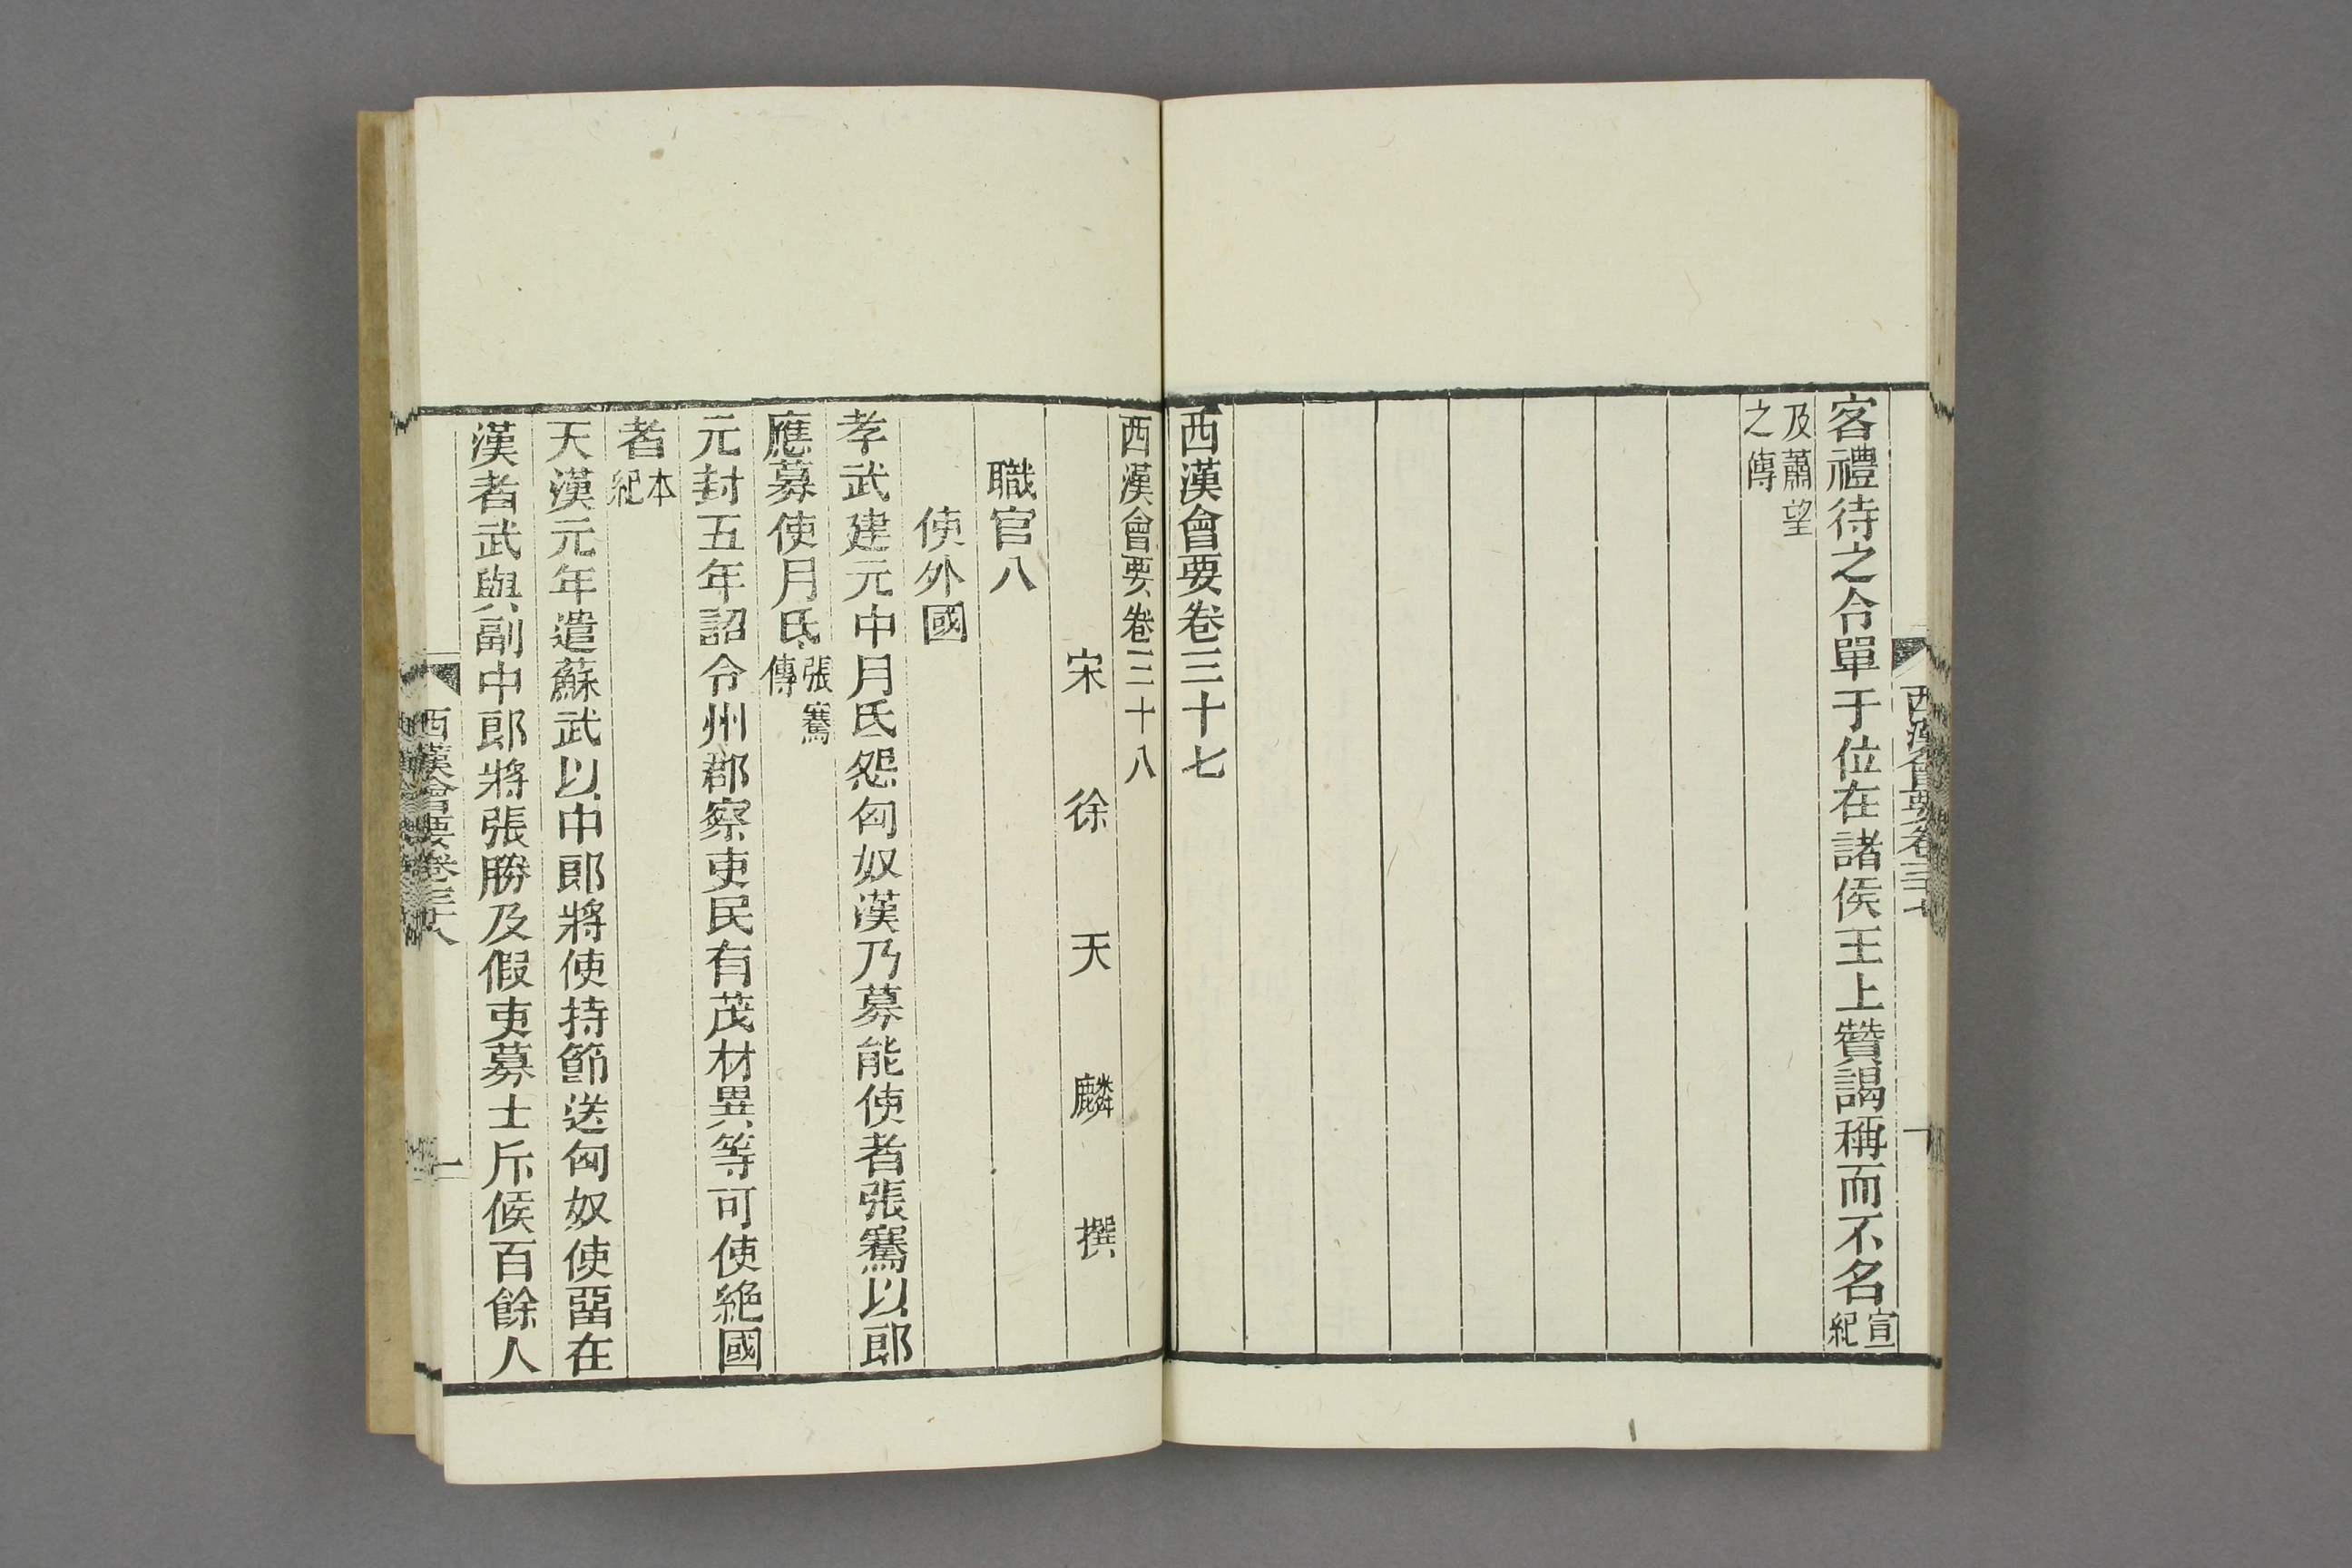 客禮待之令單于位在諸侯王上贊謁稱而不名宣紀
及蕭望之傳
西漢會要卷三十七
西漢會要卷三十八
宋徐天麟撰
職官八
使外國
孝武建元中月氏怨匈奴漢乃募能使者張騫以郎
應募使月氏張騫傳
元封五年詔令州郡察吏民有茂材異等可使絶國
者本紀
天漢元年遣蘇武以中郎將使持節送匈奴使畱在
漢者武與副中郎將張勝及假吏募士斥候百餘人
西漢會要卷三十八
一